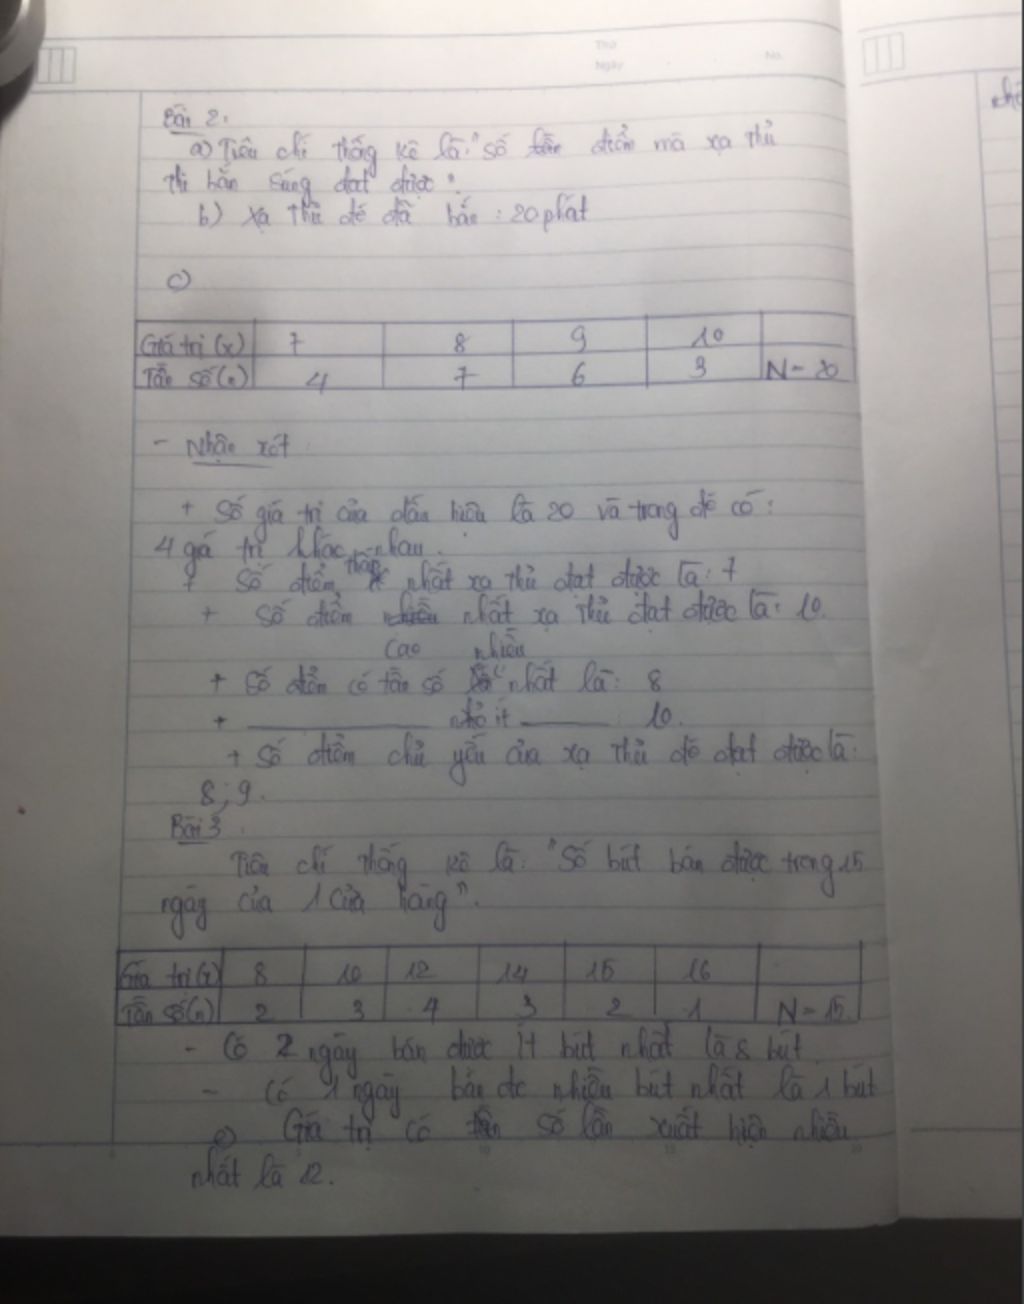 Thứ
Ngày
No.
Bài 2:
a) Tiêu chí thống kê là: "Số điểm mà xạ thủ
thi bắn súng đạt được".
b) Xạ thủ đó đã bắn : 20 phát
c)
Giá trị (x) 7 8 9 10
Tần số (n) 4 7 6 3 N = 20
- Nhận xét :
+ Số giá trị của dấu hiệu là 20 và trong đó có :
4 giá trị khác nhau.
+ Số điểm thấp nhất xạ thủ đạt được là: 7
+ Số điểm nhiều nhất xạ thủ đạt được là: 10.
cao nhiều
+ Số điểm có tần số nhất là: 8
+ ———— ít ———— 10.
+ Số điểm chủ yếu của xạ thủ đó đạt được là:
8; 9.
Bài 3
Tiêu chí thống kê là: "Số bút bán được trong 15
ngày của 1 cửa hàng".
Giá trị (x) 8 10 12 14 15 16
Tần số (n) 2 3 4 3 2 1 N = 15
- Có 2 ngày bán được ít bút nhất là 8 bút
- Có 1 ngày bán đc nhiều bút nhất là 1 bút
Giá trị có số lần xuất hiện nhiều
nhất là 12.